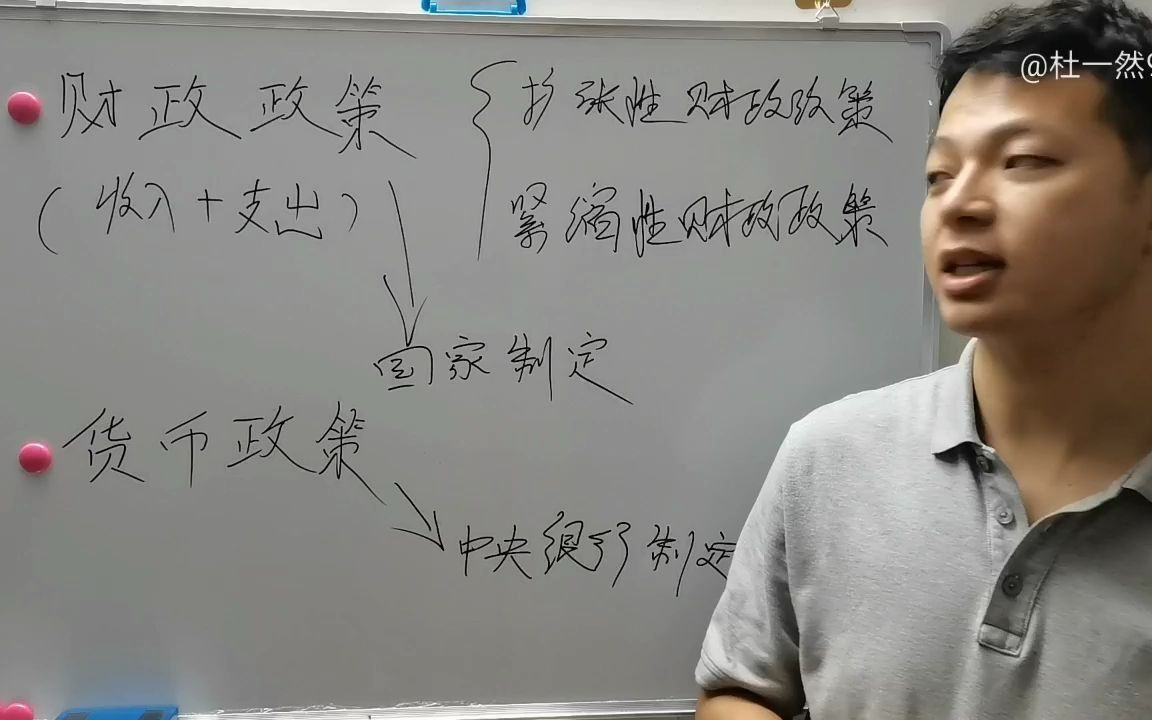 @杜一然
财政政策
扩张性财政政策
(收入+支出)
紧缩性财政政策
国家制定
货币政策
中央银行制定